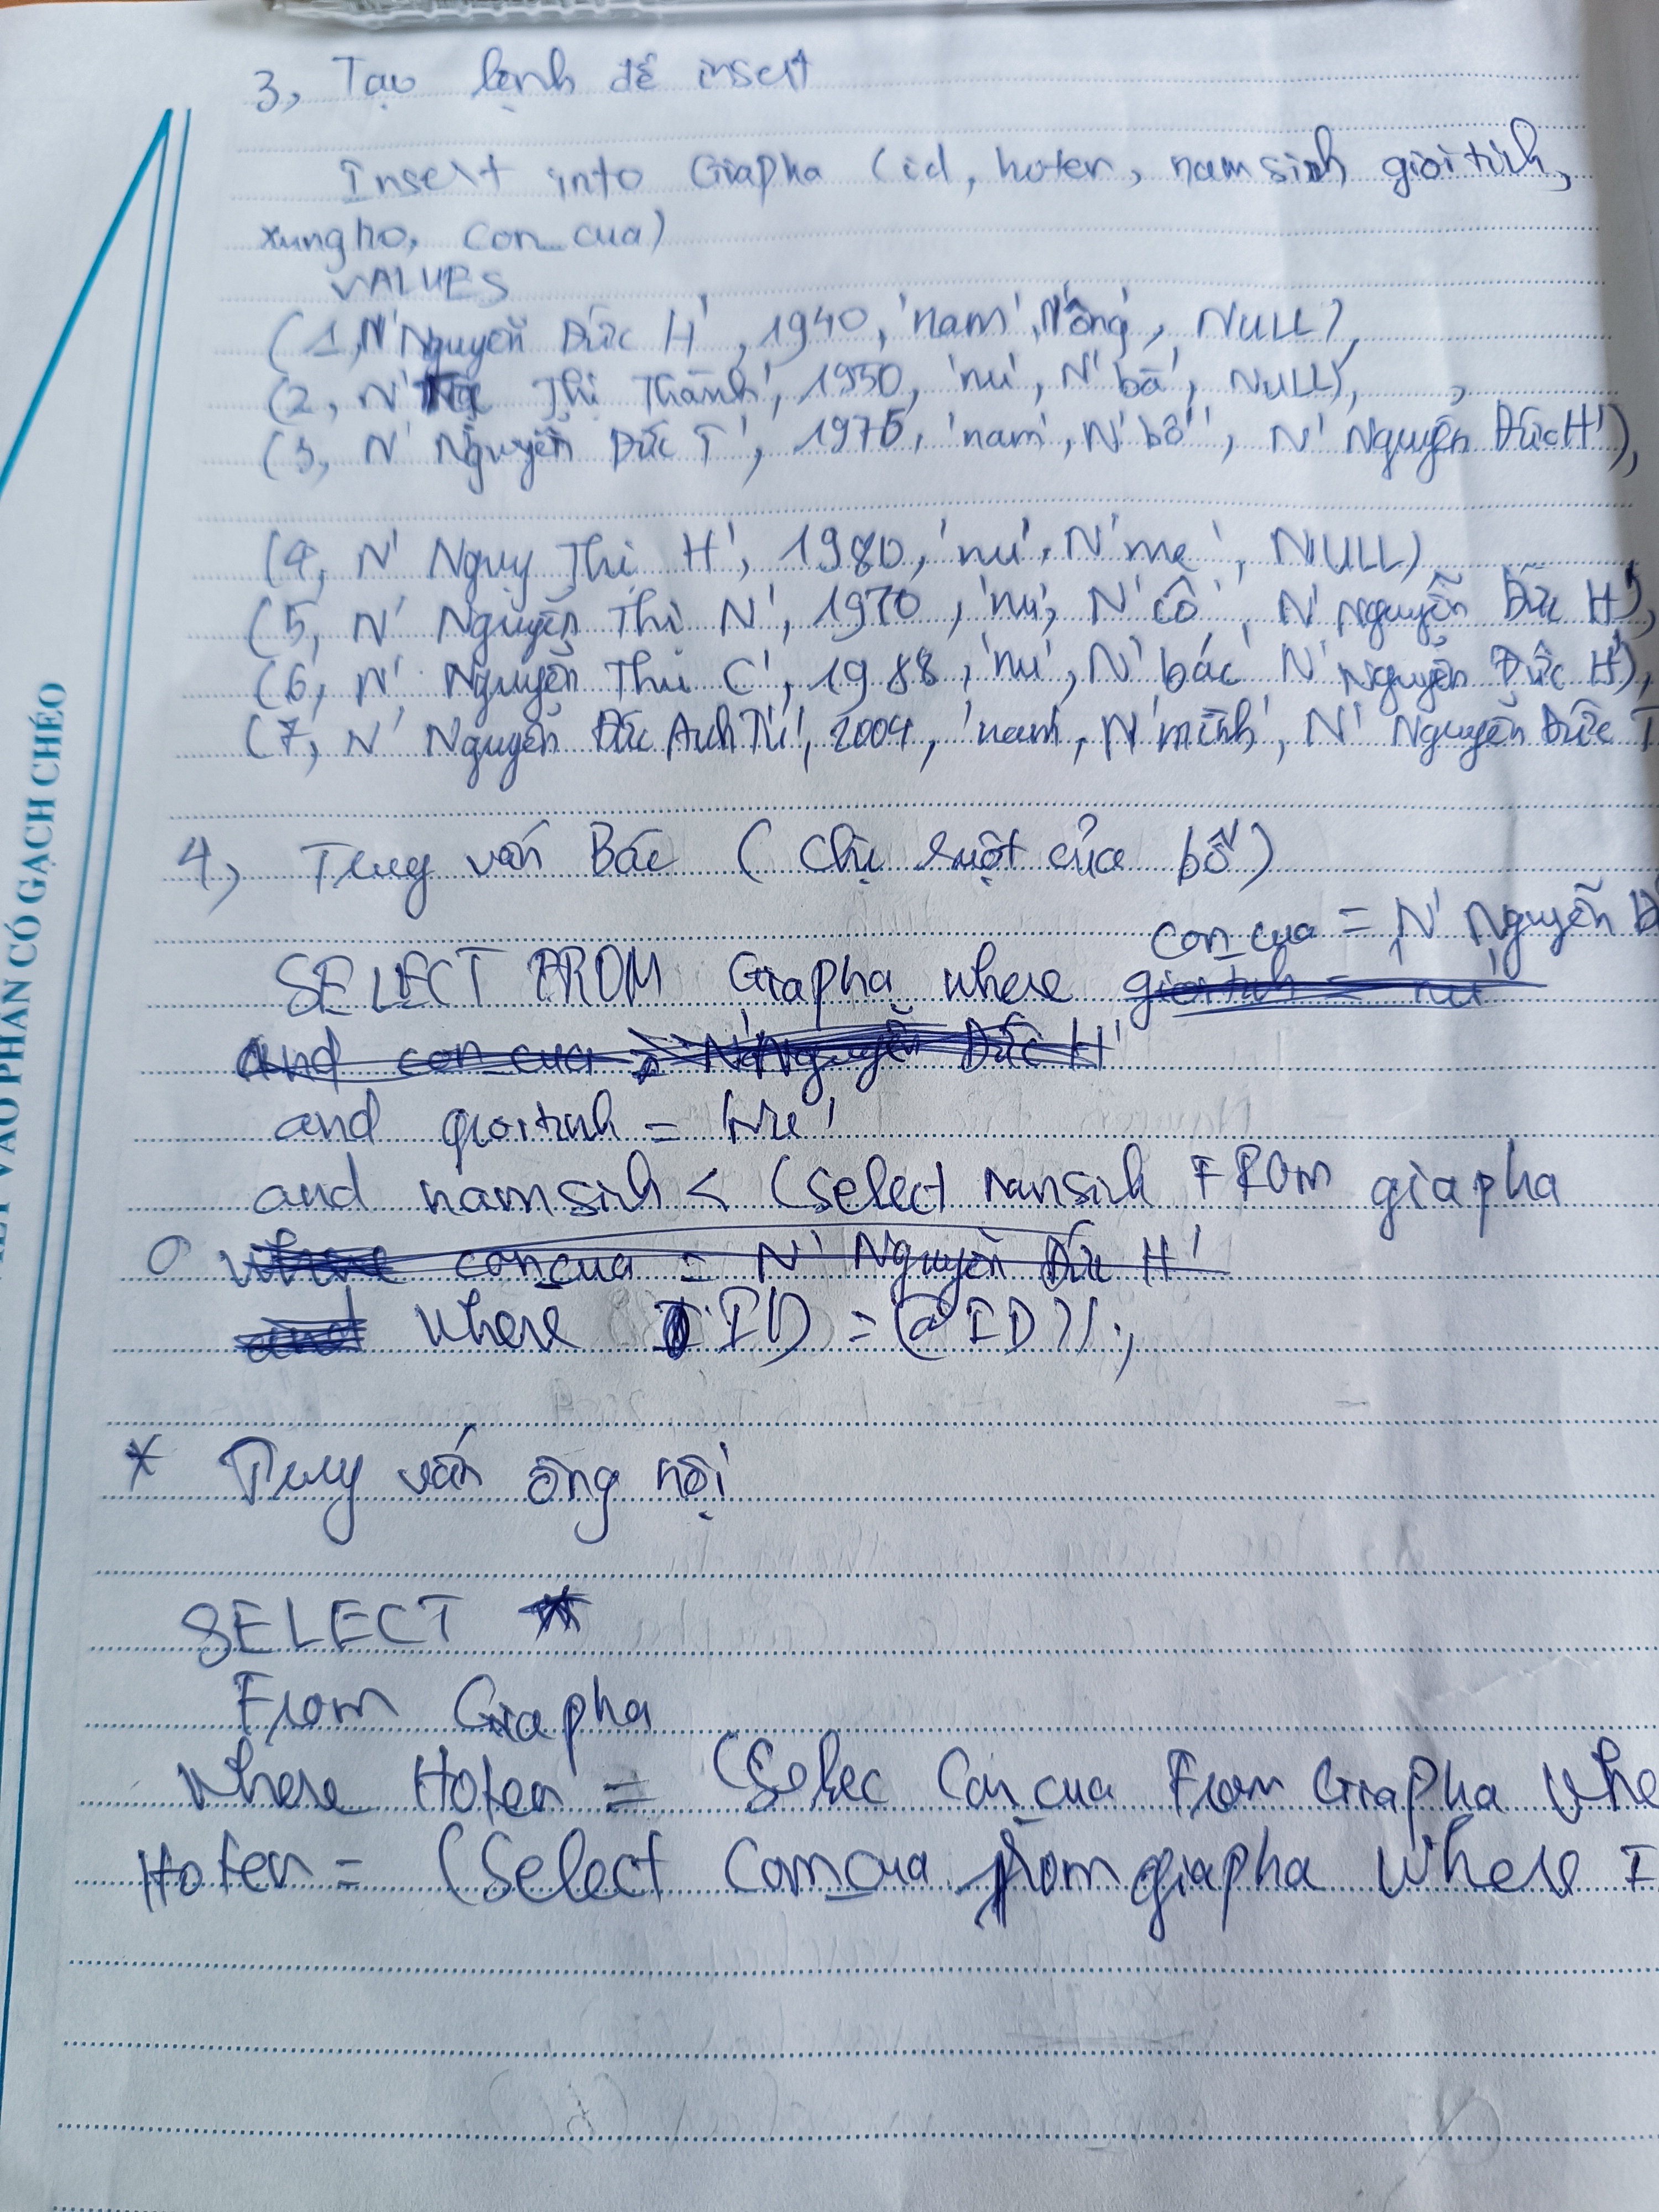 3, Tạo lệnh để insert
Insert into Giapha (id, hoten, namsinh gioitinh,
xungho, con_cua)
VALUES
(1, N'Nguyễn Đức H', 1940, 'nam', N'ông', NULL),
(2, N' Thị Thành', 1950, 'nu', N'bà', NULL),
(3, N' Nguyễn Đức T', 1975, 'nam', N'bố', N' Nguyễn Đức H'),
(4, N' Nguy Thị H', 1980, 'nu', N'mẹ', NULL)
(5, N' Nguyễn Thị N', 1970, 'nu', N'cô', N' Nguyễn Đức H'),
(6, N' Nguyễn Thị C', 1988, 'nu', N'bác' N' Nguyễn Đức H'),
(7, N' Nguyễn Đức Anh Tú', 2004, 'nam', N'mình', N' Nguyễn Đức T
4, Truy vấn Bác (chị ruột của bố)
con_cua = N' Nguyễn Đ
SELECT FROM Giapha where gioitinh = nu'
and con_cua = N'Nguyễn Đức H'
and gioitinh =
and namsinh < (select namsinh FROM giapha
where con_cua = N' Nguyễn Đức H'
and where ID = @ID));
* Truy vấn ông nội
SELECT *
From Giapha
Where Hoten = (Selec Con_cua From Giapha Whe
Hoten = (Select Con_cua from giapha where I